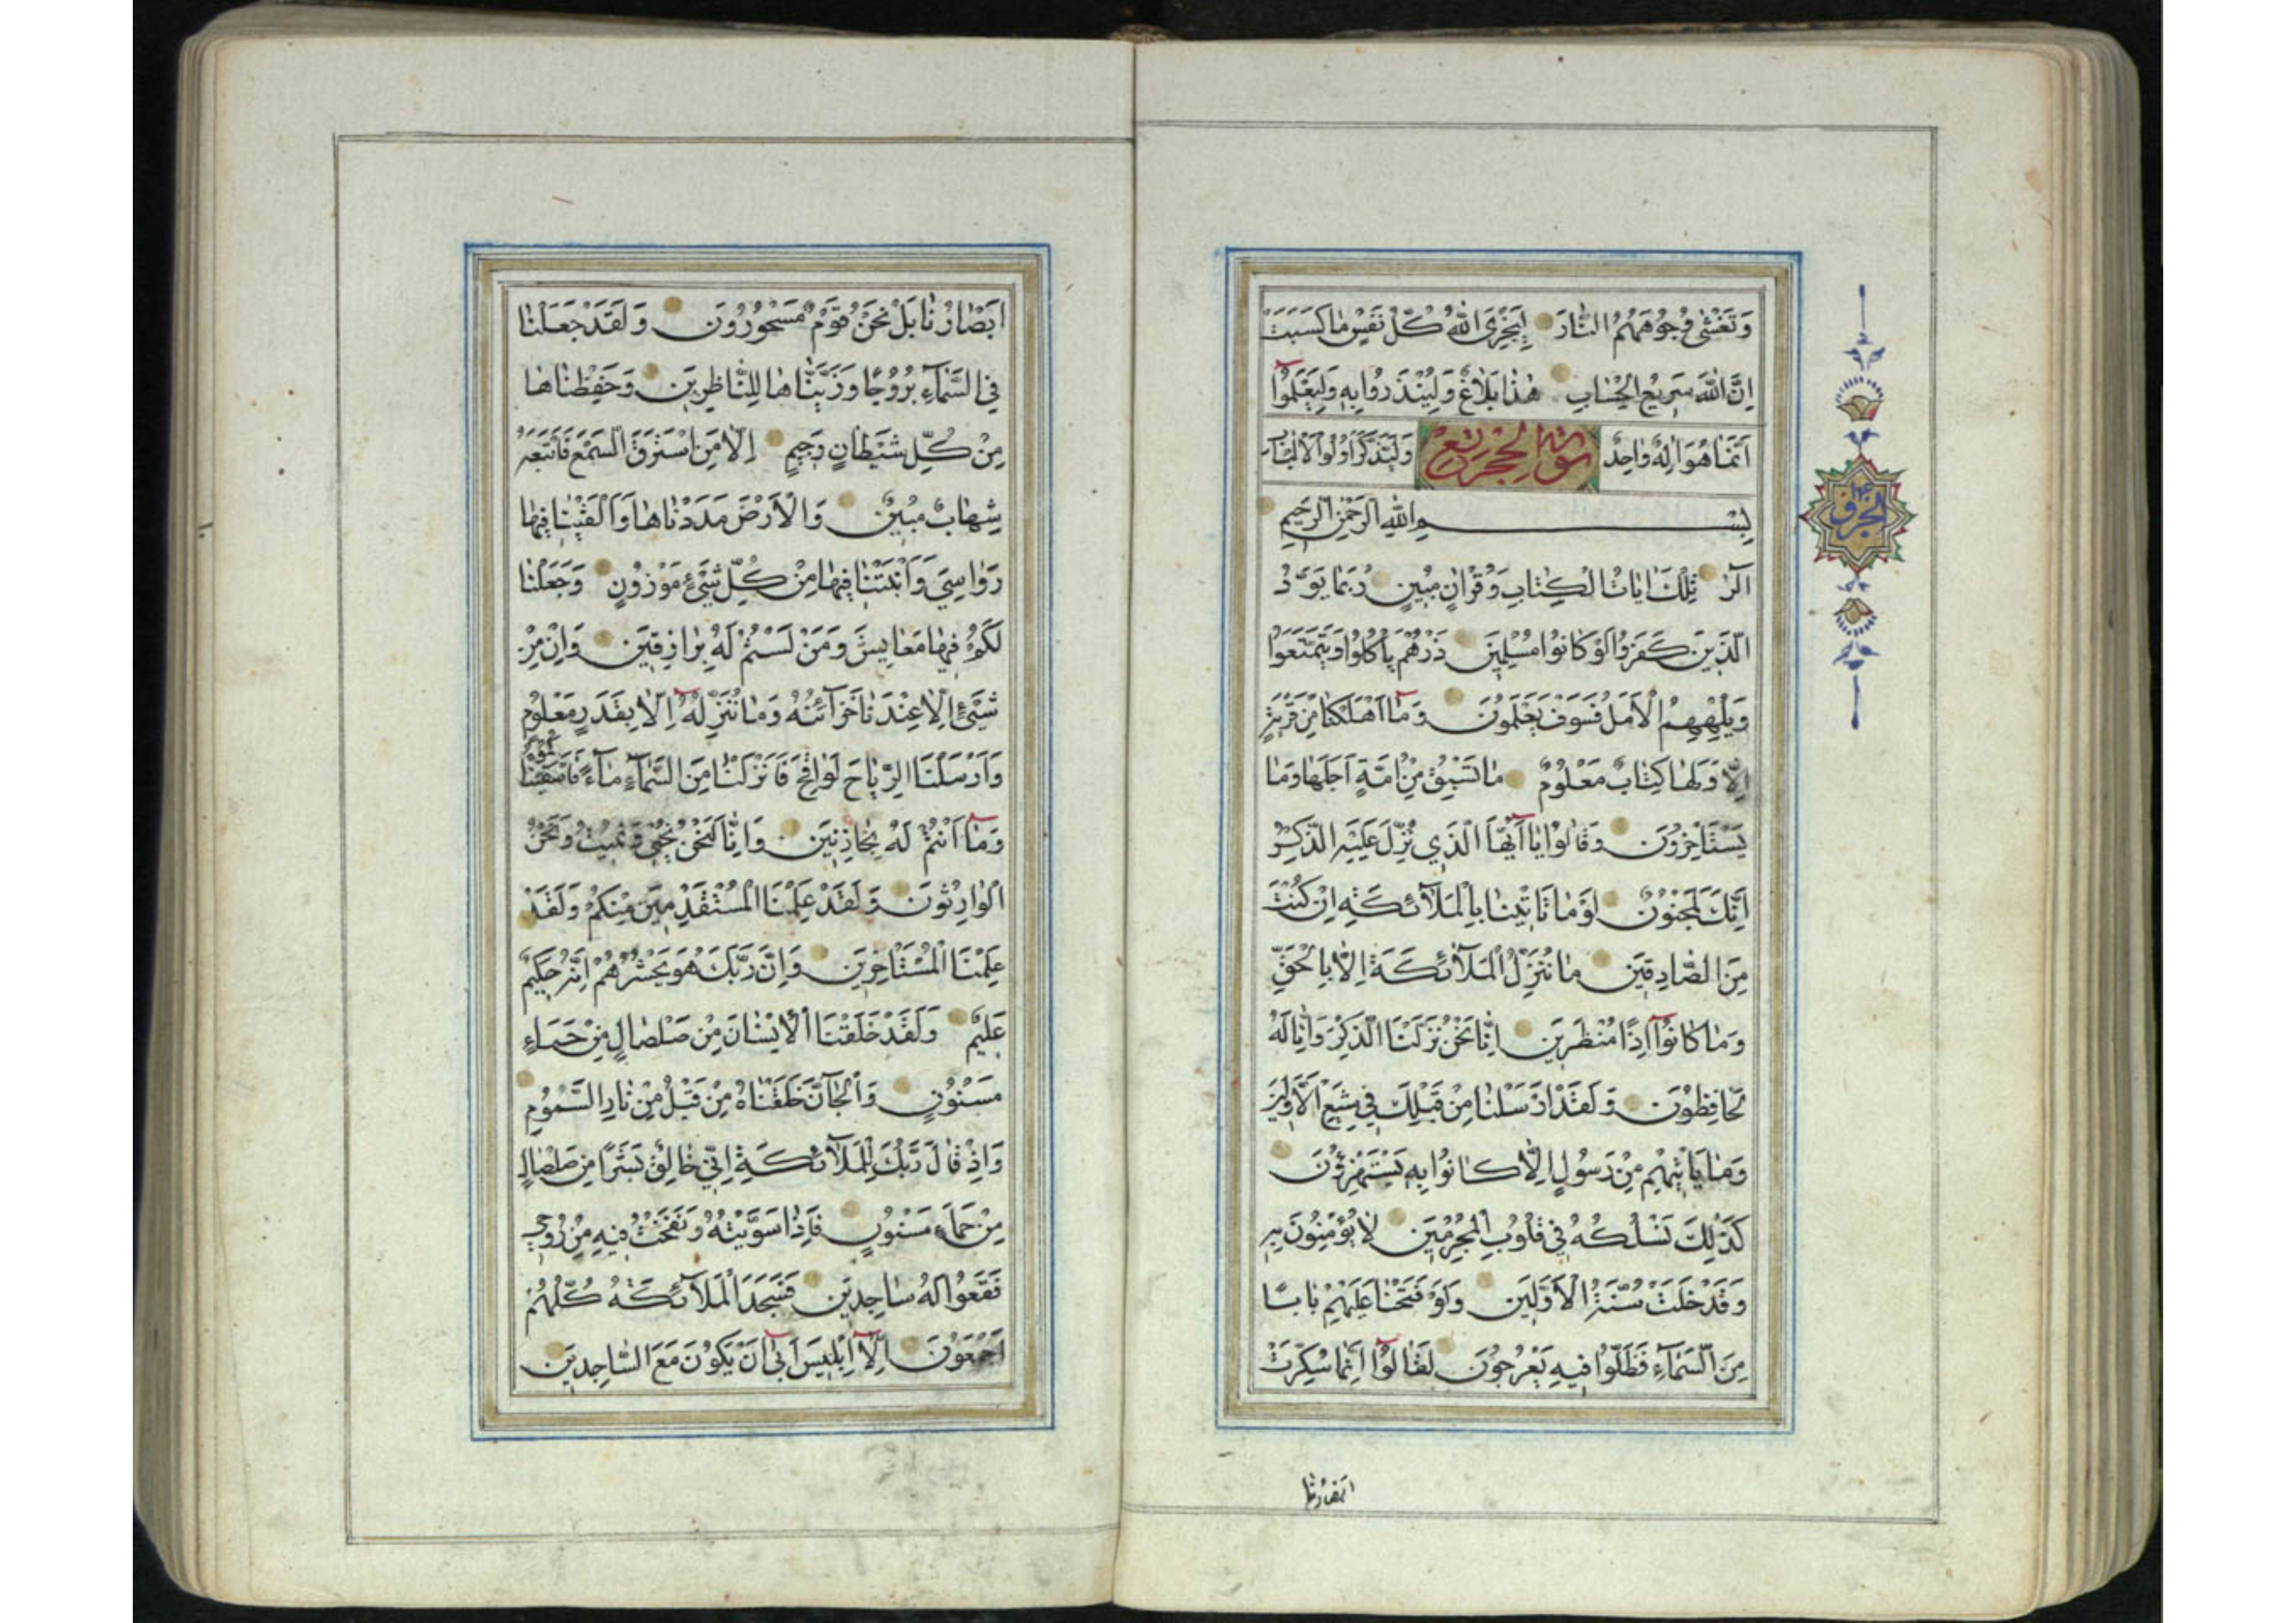 وَتَغْشٰى وُجُوهَهُمُ النَّارُ لِيَجْزِيَ اللّٰهُ كُلَّ نَفْسٍ مَا كَسَبَتْ
اِنَّ اللّٰهَ سَرِيعُ الْحِسَابِ هٰذَا بَلَاغٌ لِلنَّاسِ وَلِيُنْذَرُوا بِهِ وَلِيَعْلَمُوا
اَنَّمَا هُوَ اِلٰهٌ وَاحِدٌ وَلِيَذَّكَّرَ اُولُوا الْاَلْبَابِ
سورة الحجر
بِسْمِ اللّٰهِ الرَّحْمٰنِ الرَّحِيمِ
الٓرٰ تِلْكَ اٰيَاتُ الْكِتَابِ وَقُرْاٰنٍ مُبِينٍ رُبَمَا يَوَدُّ
الَّذِينَ كَفَرُوا لَوْ كَانُوا مُسْلِمِينَ ذَرْهُمْ يَاْكُلُوا وَيَتَمَتَّعُوا
وَيُلْهِهِمُ الْاَمَلُ فَسَوْفَ يَعْلَمُونَ وَمَا اَهْلَكْنَا مِنْ قَرْيَةٍ
اِلَّا وَلَهَا كِتَابٌ مَعْلُومٌ مَا تَسْبِقُ مِنْ اُمَّةٍ اَجَلَهَا وَمَا
يَسْتَاْخِرُونَ وَقَالُوا يَا اَيُّهَا الَّذِي نُزِّلَ عَلَيْهِ الذِّكْرُ
اِنَّكَ لَمَجْنُونٌ لَوْ مَا تَاْتِينَا بِالْمَلَآئِكَةِ اِنْ كُنْتَ
مِنَ الصَّادِقِينَ مَا نُنَزِّلُ الْمَلَآئِكَةَ اِلَّا بِالْحَقِّ
وَمَا كَانُوا اِذًا مُنْظَرِينَ اِنَّا نَحْنُ نَزَّلْنَا الذِّكْرَ وَاِنَّا لَهُ
لَحَافِظُونَ وَلَقَدْ اَرْسَلْنَا مِنْ قَبْلِكَ فِي شِيَعِ الْاَوَّلِينَ
وَمَا يَاْتِيهِمْ مِنْ رَسُولٍ اِلَّا كَانُوا بِهِ يَسْتَهْزِؤُنَ
كَذٰلِكَ نَسْلُكُهُ فِي قُلُوبِ الْمُجْرِمِينَ لَا يُؤْمِنُونَ بِهِ
وَقَدْ خَلَتْ سُنَّةُ الْاَوَّلِينَ وَلَوْ فَتَحْنَا عَلَيْهِمْ بَابًا
مِنَ السَّمَآءِ فَظَلُّوا فِيهِ يَعْرُجُونَ لَقَالُوا اِنَّمَا سُكِّرَتْ
ابصارنا
اَبْصَارُنَا بَلْ نَحْنُ قَوْمٌ مَسْحُورُونَ وَلَقَدْ جَعَلْنَا
فِي السَّمَآءِ بُرُوجًا وَزَيَّنَّاهَا لِلنَّاظِرِينَ وَحَفِظْنَاهَا
مِنْ كُلِّ شَيْطَانٍ رَجِيمٍ اِلَّا مَنِ اسْتَرَقَ السَّمْعَ فَاَتْبَعَهُ
شِهَابٌ مُبِينٌ وَالْاَرْضَ مَدَدْنَاهَا وَاَلْقَيْنَا فِيهَا
رَوَاسِيَ وَاَنْبَتْنَا فِيهَا مِنْ كُلِّ شَيْءٍ مَوْزُونٍ وَجَعَلْنَا
لَكُمْ فِيهَا مَعَايِشَ وَمَنْ لَسْتُمْ لَهُ بِرَازِقِينَ وَاِنْ مِنْ
شَيْءٍ اِلَّا عِنْدَنَا خَزَآئِنُهُ وَمَا نُنَزِّلُهُ اِلَّا بِقَدَرٍ مَعْلُومٍ
وَاَرْسَلْنَا الرِّيَاحَ لَوَاقِحَ فَاَنْزَلْنَا مِنَ السَّمَآءِ مَآءً فَاَسْقَيْنَاكُمُوهُ
وَمَا اَنْتُمْ لَهُ بِخَازِنِينَ وَاِنَّا لَنَحْنُ نُحْيِي وَنُمِيتُ وَنَحْنُ
الْوَارِثُونَ وَلَقَدْ عَلِمْنَا الْمُسْتَقْدِمِينَ مِنْكُمْ وَلَقَدْ
عَلِمْنَا الْمُسْتَاْخِرِينَ وَاِنَّ رَبَّكَ هُوَ يَحْشُرُهُمْ اِنَّهُ حَكِيمٌ
عَلِيمٌ وَلَقَدْ خَلَقْنَا الْاِنْسَانَ مِنْ صَلْصَالٍ مِنْ حَمَاءٍ
مَسْنُونٍ وَالْجَآنَّ خَلَقْنَاهُ مِنْ قَبْلُ مِنْ نَارِ السَّمُومِ
وَاِذْ قَالَ رَبُّكَ لِلْمَلَآئِكَةِ اِنِّي خَالِقٌ بَشَرًا مِنْ صَلْصَالٍ
مِنْ حَمَاءٍ مَسْنُونٍ فَاِذَا سَوَّيْتُهُ وَنَفَخْتُ فِيهِ مِنْ رُوحِي
فَقَعُوا لَهُ سَاجِدِينَ فَسَجَدَ الْمَلَآئِكَةُ كُلُّهُمْ
اَجْمَعُونَ اِلَّا اِبْلِيسَ اَبٰى اَنْ يَكُونَ مَعَ السَّاجِدِينَ